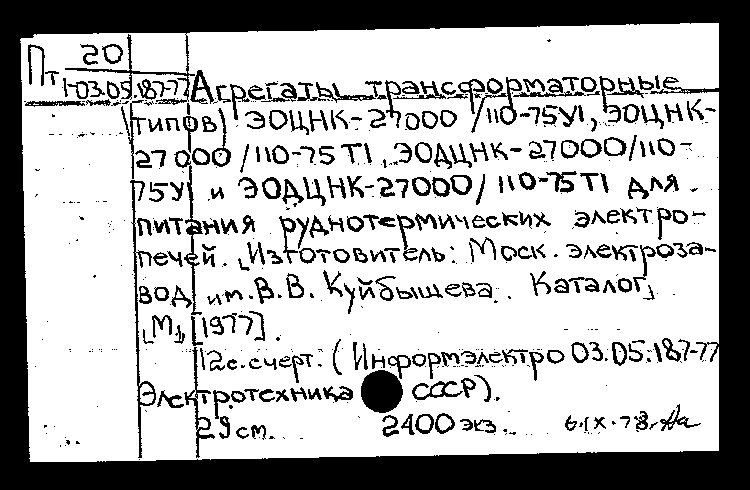 Пт 20
1-03.05.187-77 Агрегаты трансформаторные
(типов) ЭОЦНК-27000/110-75У1, ЭОЦНК-
27000/110-75Т1, ЭОДЦНК-27000/110-
75У1 и ЭОДЦНК-27000/110-75Т1 для
питания руднотермических электро-
печей. [Изготовитель: Моск. электроза-
вод им. В.В. Куйбышева. Каталог]
[М.] [1977].
12с. счерт. (Информэлектро 03.05.187-77
Электротехника СССР).
29 см. 2400 экз. 6.IX.78.